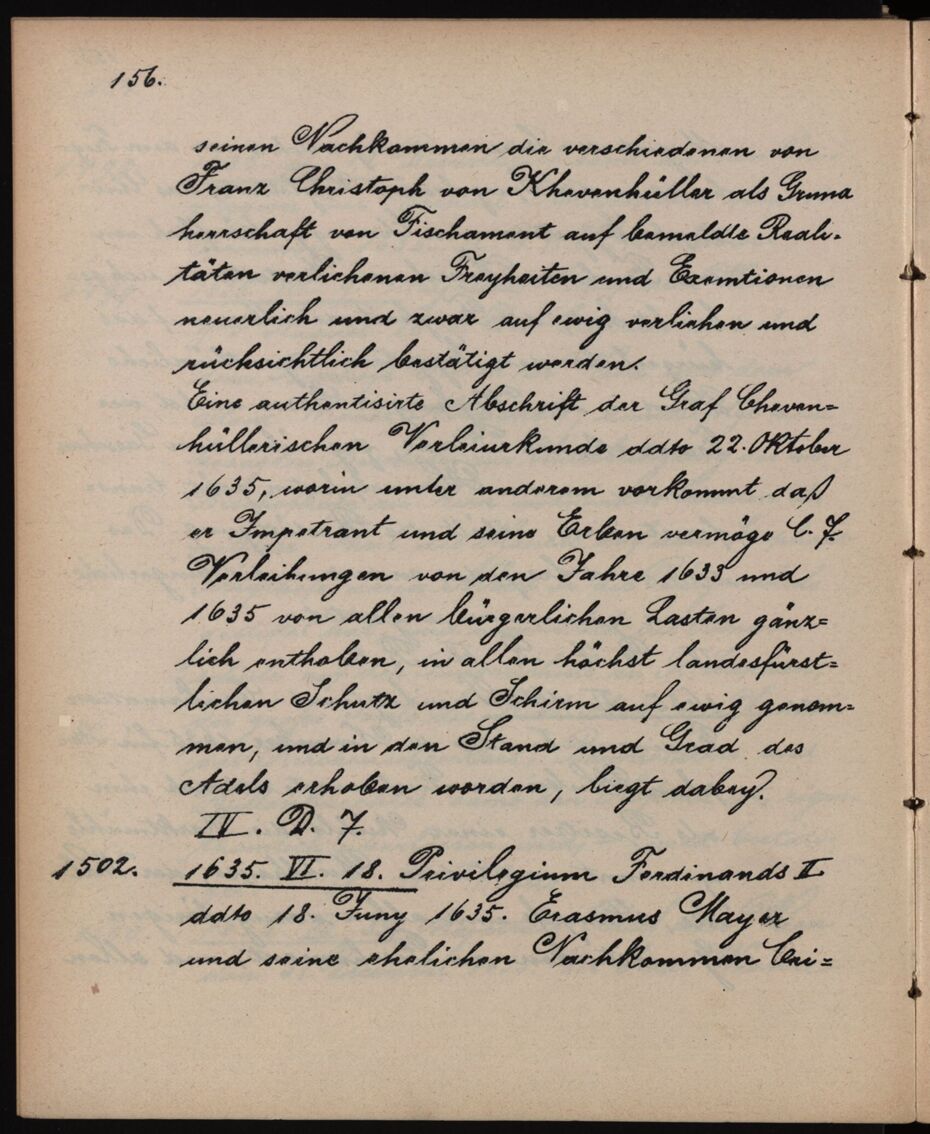 156.
seinen Nachkommen die verschiedenen von
Franz Christoph von Khevenhüller als Grund
herrschaft von Fischament auf bemeldte Reali-
täten verlichenen Freyheiten und Exemtionen
neuerlich und zwar auf ewig verliehen und
rücksichtlich bestätigt werden.
Eine authentisirte Abschrift der Graf Cheven=
hüllerischen Verleiurkunde ddto 22. Oktober
1635, worin unter anderem vorkommt daß
er Impetrant und seine Erben vermöge C. F.
Verleihungen von den Jahre 1633 und
1635 von allen bürgerlichen Lasten gänz=
lich enthoben, in allen höchst landesfürst=
lichen Schutz und Schirm auf ewig genom=
men, und in den Stand und Grad des
Adels erhoben worden, liegt dabey.
IV. D. 7.
1502. 1635. VI. 18. Privilegium Ferdinands II
ddto 18. Juny 1635. Erasmus Mayer
und seine ehelichen Nachkommen bei=